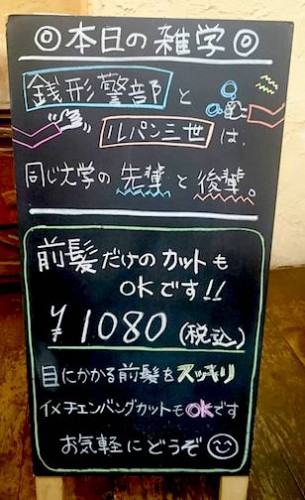 ◎本日の雑学◎
銭形警部と
ルパン三世は、
同じ大学の先輩と後輩。
前髪だけのカットも
OKです!!
¥1080(税込)
目にかかる前髪をスッキリ
イメチェンバングカットもOKです
お気軽にどうぞ☺